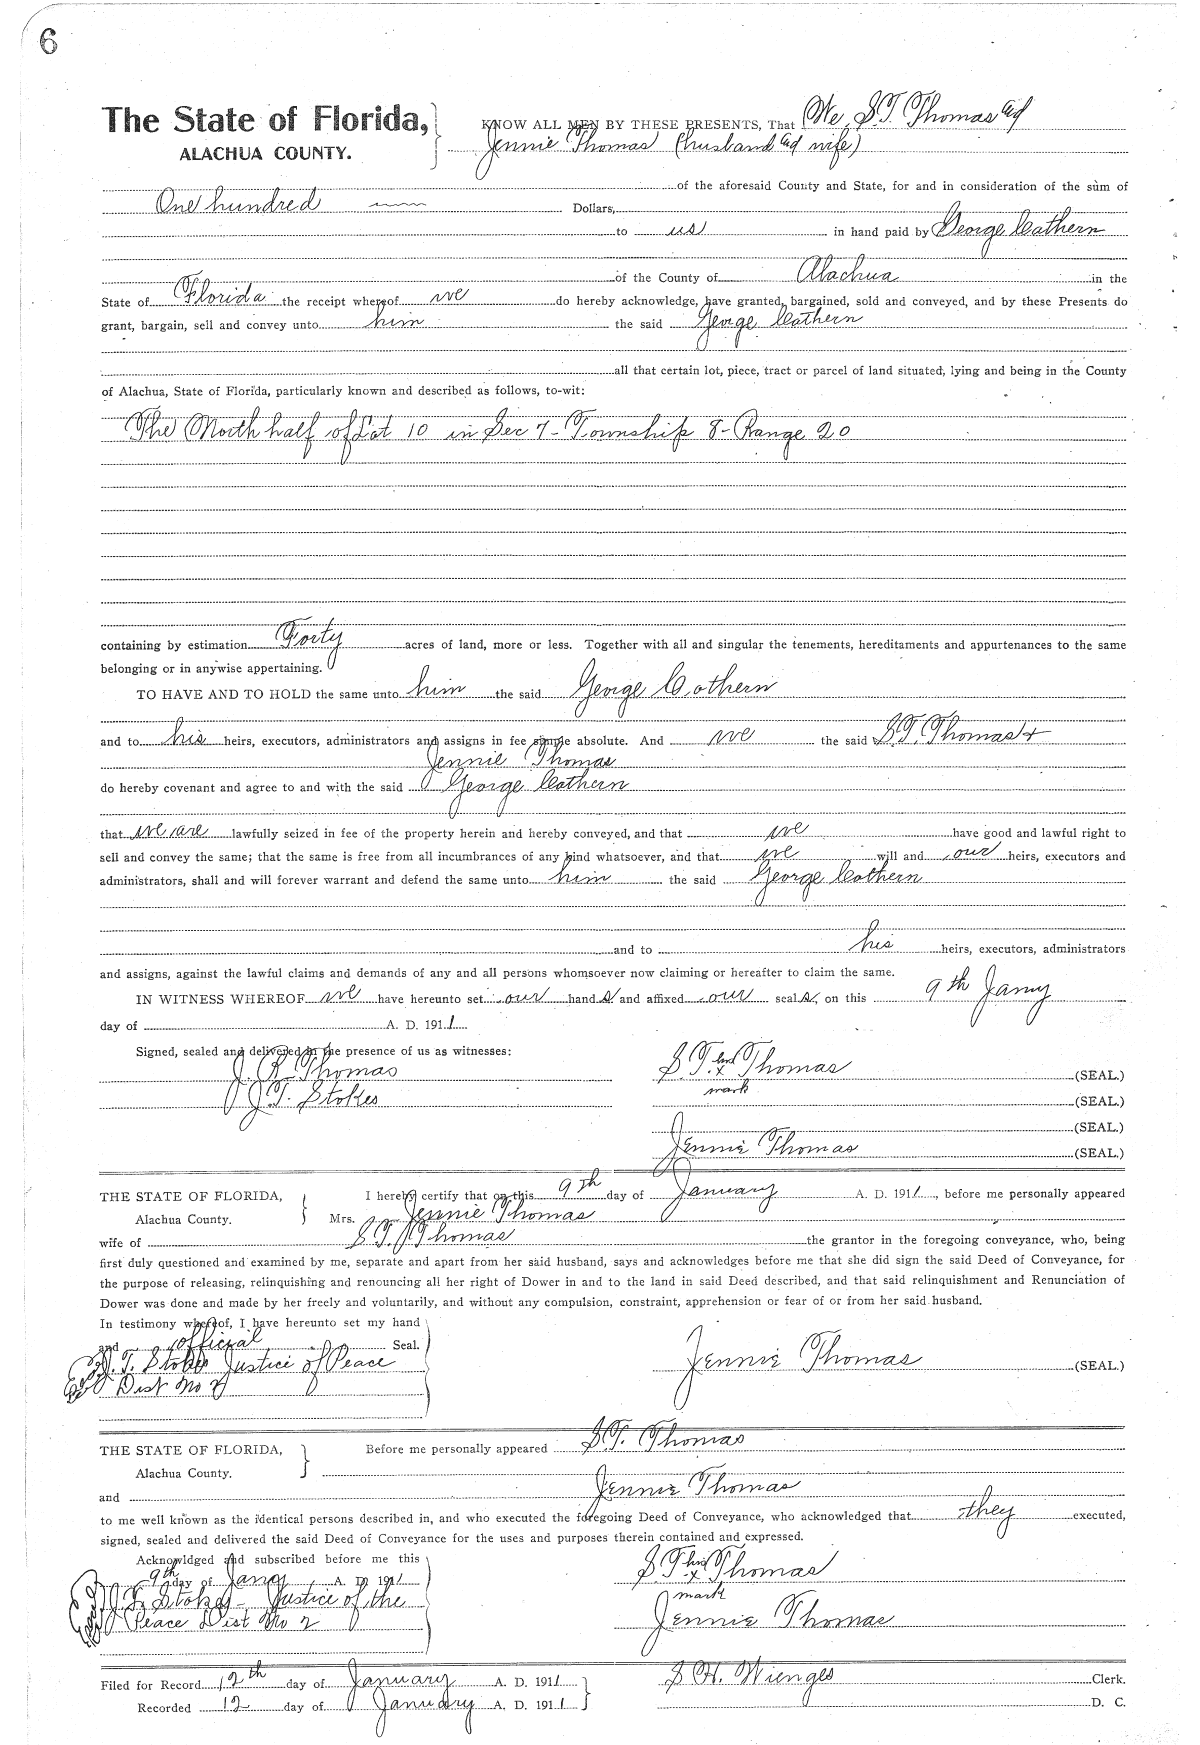 6
The State of Florida,
ALACHUA COUNTY.
KNOW ALL MEN BY THESE PRESENTS, That We, S.T. Thomas and
Jennie Thomas (husband and wife)
of the aforesaid County and State, for and in consideration of the sum of
One hundred Dollars,
to us in hand paid by George Cothern
of the County of Alachua in the
State of Florida the receipt whereof we do hereby acknowledge, have granted, bargained, sold and conveyed, and by these Presents do
grant, bargain, sell and convey unto him the said George Cothern
all that certain lot, piece, tract or parcel of land situated, lying and being in the County
of Alachua, State of Florida, particularly known and described as follows, to-wit:
The North half of Lot 10 in Sec 7 - Township 8 - Range 20
containing by estimation Forty acres of land, more or less. Together with all and singular the tenements, hereditaments and appurtenances to the same
belonging or in anywise appertaining.
TO HAVE AND TO HOLD the same unto him the said George Cothern
and to his heirs, executors, administrators and assigns in fee simple absolute. And we the said S.T. Thomas +
Jennie Thomas
do hereby covenant and agree to and with the said George Cothern
that we are lawfully seized in fee of the property herein and hereby conveyed, and that we have good and lawful right to
sell and convey the same; that the same is free from all incumbrances of any kind whatsoever, and that we will and our heirs, executors and
administrators, shall and will forever warrant and defend the same unto him the said George Cothern
and to his heirs, executors, administrators
and assigns, against the lawful claims and demands of any and all persons whomsoever now claiming or hereafter to claim the same.
IN WITNESS WHEREOF we have hereunto set our hands and affixed our seals, on this 9th Jany
day of A. D. 1911
Signed, sealed and delivered in the presence of us as witnesses:
J. R. Thomas
J. T. Stokes
S. T. his x mark Thomas (SEAL.)
(SEAL.)
(SEAL.)
Jennie Thomas (SEAL.)
THE STATE OF FLORIDA,
Alachua County.
I hereby certify that on this 9th day of January A. D. 1911, before me personally appeared
Mrs. Jennie Thomas
wife of S. T. Thomas the grantor in the foregoing conveyance, who, being
first duly questioned and examined by me, separate and apart from her said husband, says and acknowledges before me that she did sign the said Deed of Conveyance, for
the purpose of releasing, relinquishing and renouncing all her right of Dower in and to the land in said Deed described, and that said relinquishment and Renunciation of
Dower was done and made by her freely and voluntarily, and without any compulsion, constraint, apprehension or fear of or from her said husband.
In testimony whereof, I have hereunto set my hand
and official Seal.
J. T. Stokes Justice of Peace
Dist No 2
Jennie Thomas (SEAL.)
THE STATE OF FLORIDA,
Alachua County.
Before me personally appeared S. T. Thomas
and Jennie Thomas
to me well known as the identical persons described in, and who executed the foregoing Deed of Conveyance, who acknowledged that they executed,
signed, sealed and delivered the said Deed of Conveyance for the uses and purposes therein contained and expressed.
Acknowldged and subscribed before me this
9th day of Jany A. D. 1911
J. T. Stokes - Justice of the
Peace Dist No 2
S. T. his x mark Thomas
Jennie Thomas
Filed for Record 12th day of January A. D. 1911
Recorded 12 day of January A. D. 1911
S. H. Wienges Clerk.
D. C.